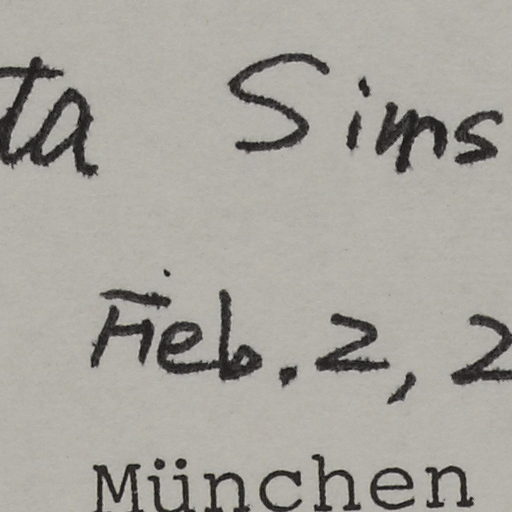 ta Sims
Feb. 2, 2
München